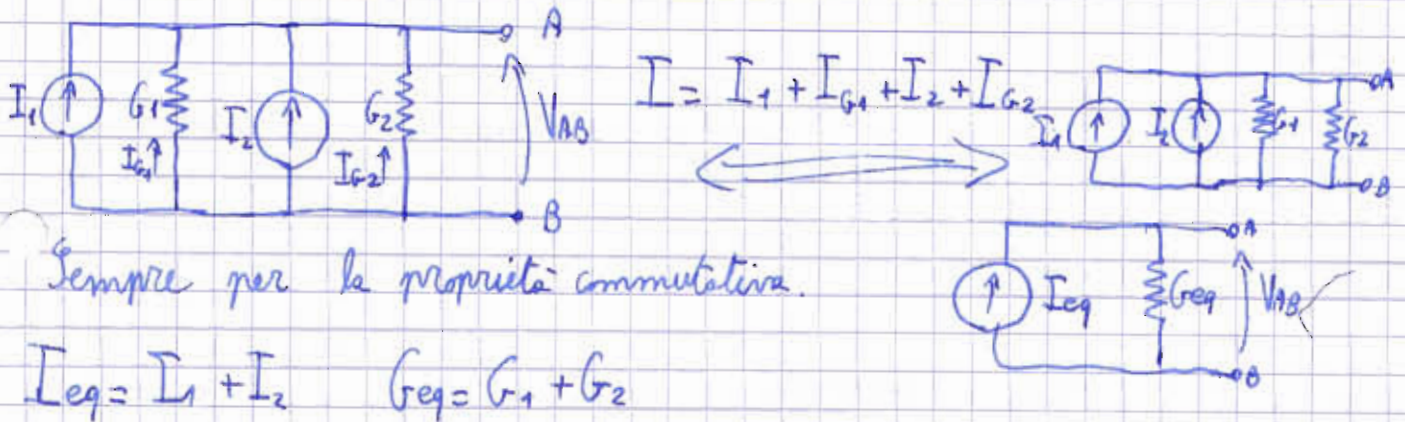 A
I₁ G₁ I₂ G₂ V_AB
I_G1 I_G2
B
I = I₁ + I_G1 + I₂ + I_G2
I₁ I₂ G₁ G₂ A
B
Sempre per la proprietà commutativa.
A
I_eq G_eq V_AB
B
I_eq = I₁ + I₂ G_eq = G₁ + G₂